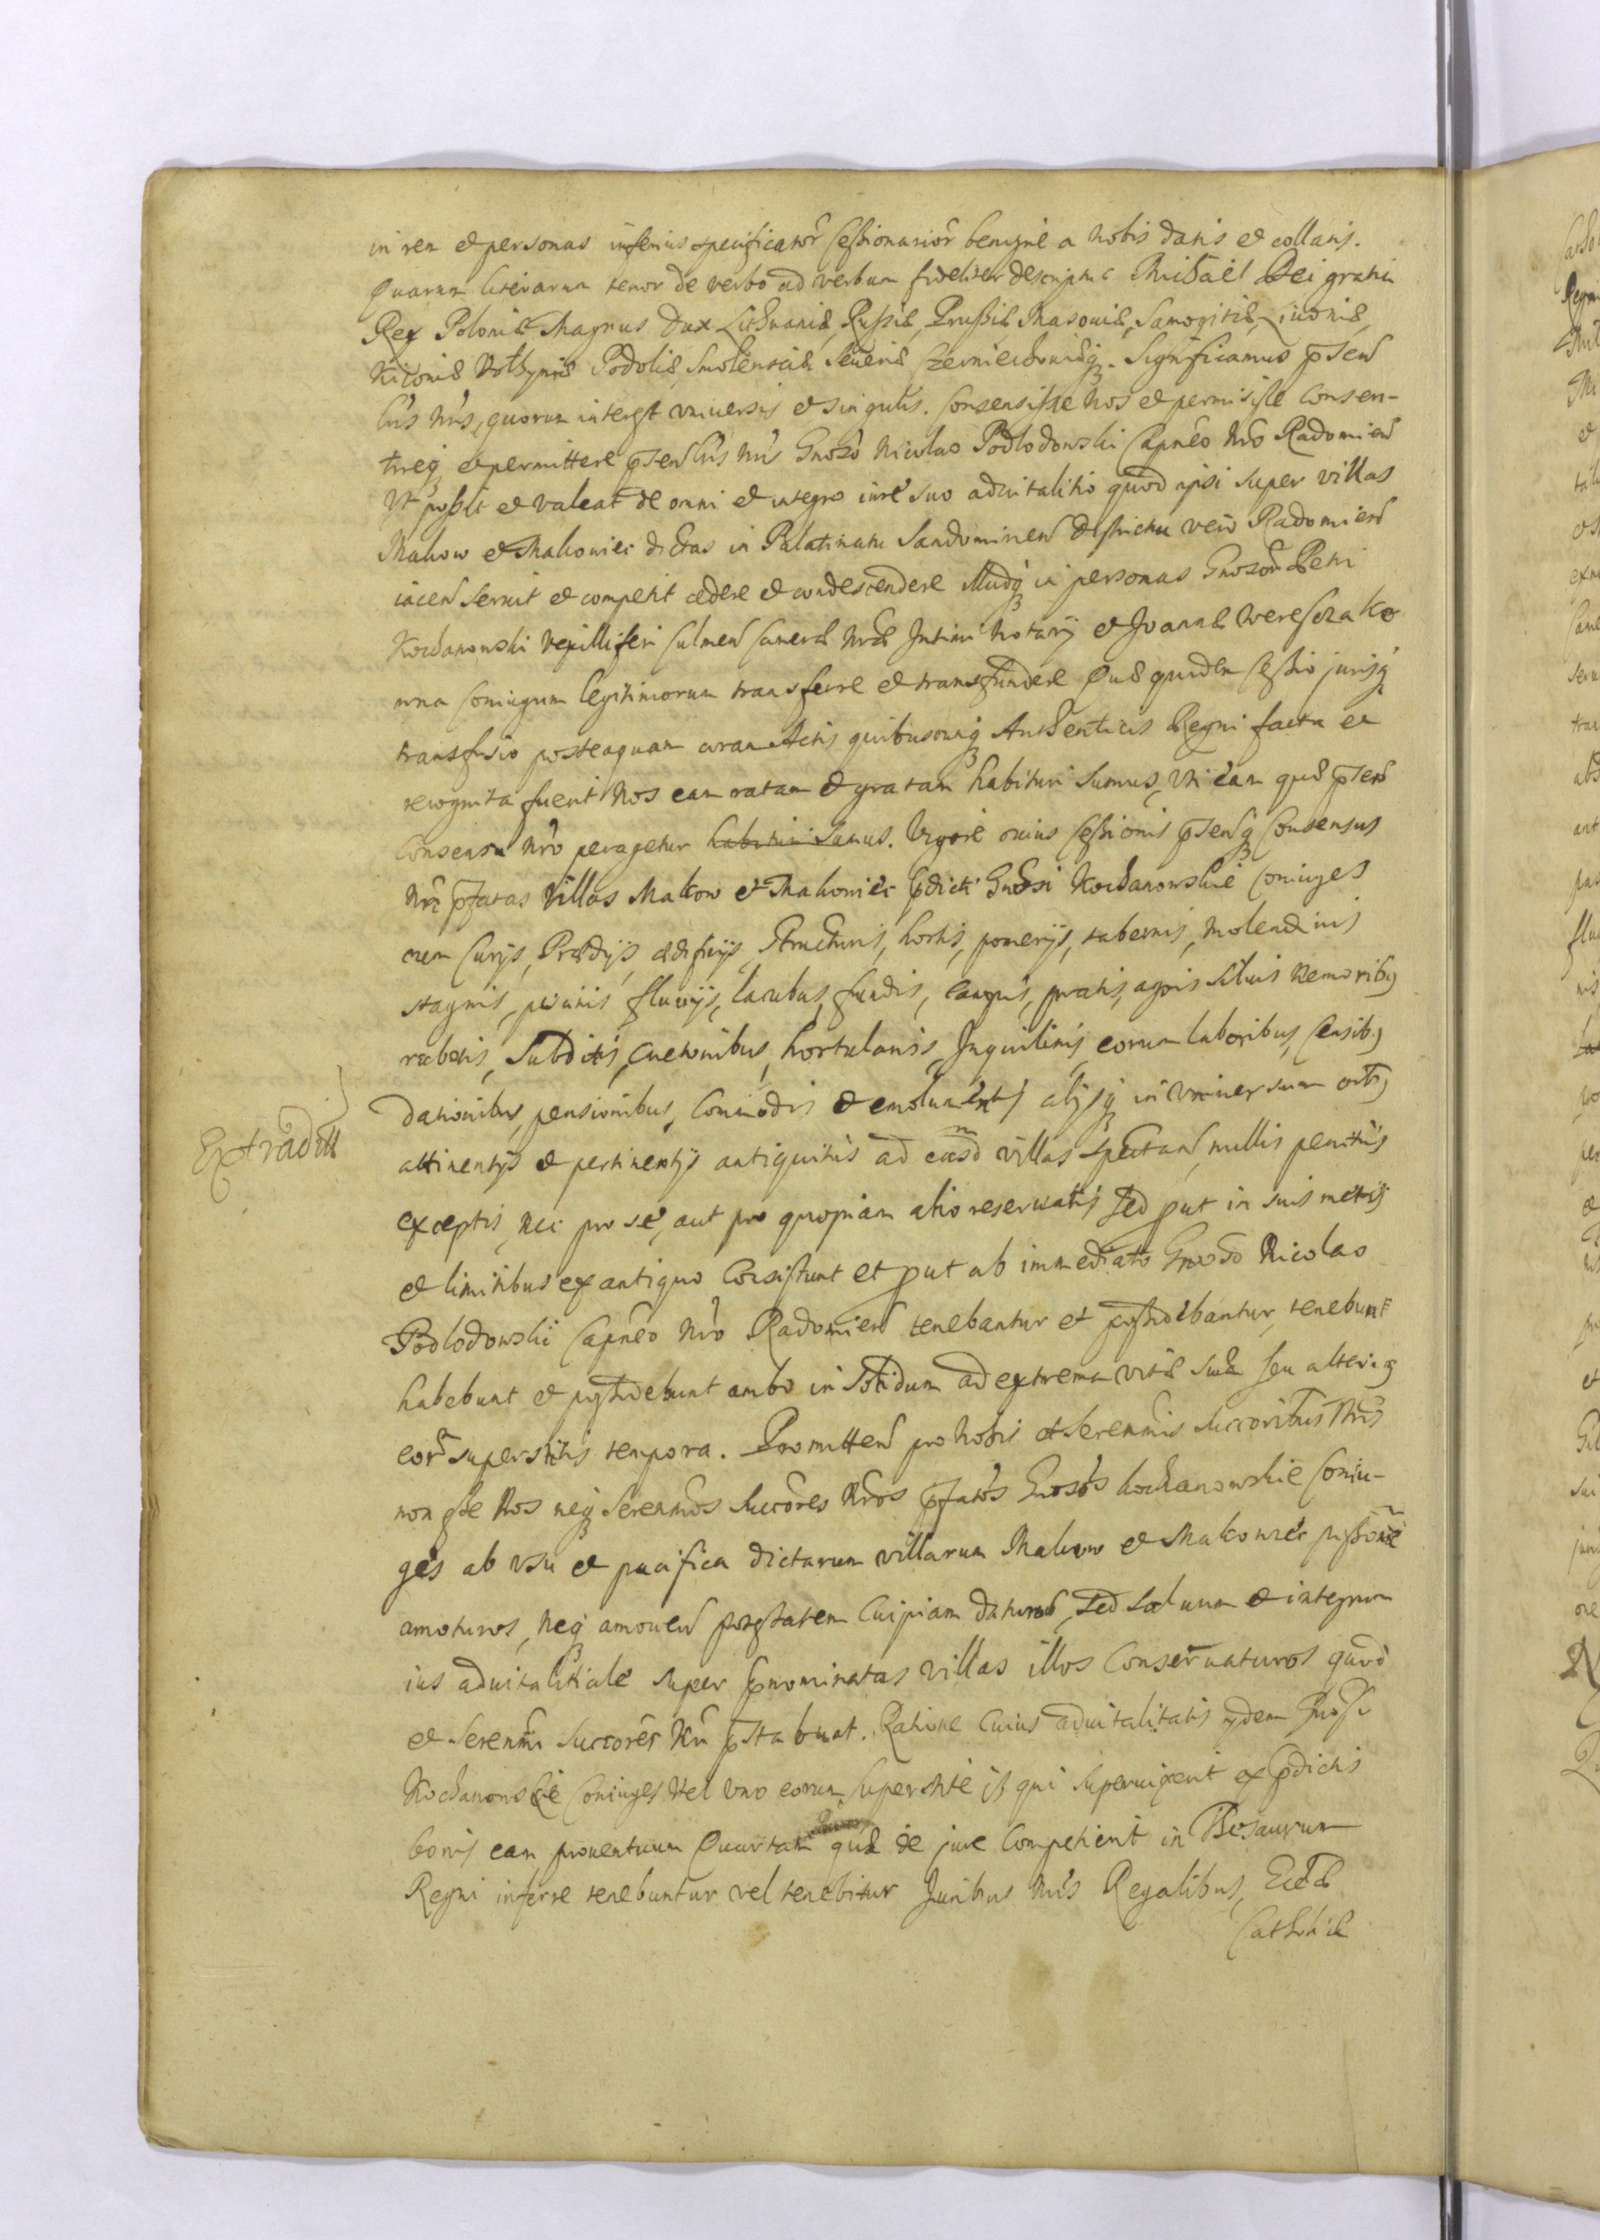 in rem et personas inferius specificator Cessionarior benigne a Nobis datis et collatis.
Quarum literarum tenor de verbo ad verbum fideliter descriptus Michaël Dei gratia
Rex Poloniæ Magnus Dux Lithuaniæ, Russiæ, Prussiæ Masouiæ, Samogitiæ, Liuoniæ,
Kiiouiæ Volhyniæ Podoliæ, Smolensciæ Seueriæ Czerniechouiæq. Significamus psen
lris nris, quorum interest vniuersis et singulis. Consensisse Nos et permisisse Consen-
tireq et permittere psen lris nris Gnoso Nicolao Podlodowski Capneo Nro Radomien
Vt possit et valeat de omni et integro iure suo aduitalitio quod ipsi super villas
Makow et Makowiec dictas in Palatinatu Sandomirien Districtu vero Radomien
iacen seruit et competit cedere et condescendere illudq in personas Gnosor Petri
Kochanowski Vexilliferi Culmen Cameræ Nræ Intimi Notarij et Joannæ Wereszczako
wna Coniugum legitimorum transferre et transfundere Quæ quidem Cessio jurisq
transfusio posteaquam coram Actis quibuscunq Authenticis Regni facta et
recognita fuerit Nos eam ratam et gratam habituri sumus, Vti eam quæ psen
Consensu Nro peragetur habituri sumus. Vigore cuius Cessionis psensq Consensus
Nri pfatas Villas Makow et Makowiec pdicti Gnosi Kochanowskie Coniuges
cum Curijs, Prædijs, ædificijs, Structuris, hortis, pomerijs, tabernis, Molendinis
stagnis, piscinis fluuijs, lacubus, fundis, campis, pratis, agris siluis Nemoribus
rubetis, Subditis, Cmetonibus, hortulanis, Inquilinis, eorum laboribus, Censibus
dationibus, pensionibus, Commodis et emolumentis alijsq in Vniuersum oibus
attinentijs et pertinentijs antiquitus ad easdm villas spectan, nullis penitus
exceptis, nec pro se, aut pro quopiam alio reseruatis Sed put in suis metis
et limitibus ex antiquo Consistunt et put ab immediato Gnoso Nicolao
Podlodowski Capneo Nro Radomien tenebantur et possidebantur, tenebunt
habebunt et possidebunt ambo in Solidum ad extrema vitæ suæ seu alterius
eor superstitis tempora. Promitten pro Nobis et Serenmis Succoribus Nris
non esse Nos neq Serenmos Succores Nros pfatos Gnosos Kochanowskie Coniu-
ges ab vsu et pacifica dictarum villarum Makow et Makowiec possione
amoturos, Neq amouen potestatem Cuipiam daturos, sed saluum et integrum
ius aduitalitiale super pnominatas villas illos Conseruaturos quod
et Serenmi Succores Nri pstabunt. Ratione Cuius aduitalitatis ijdem Gnosi
Kochanowskie Coniuges Vel vno eorum superstite is qui superuixerit ex pdictis
bonis eam prouentuum Quartam quæ de jure Competierit in Thesaurum
Regni inferre tenebuntur vel tenebitur Juribus Nris Regalibus, Ecclæ
Catholicæ
Extradit